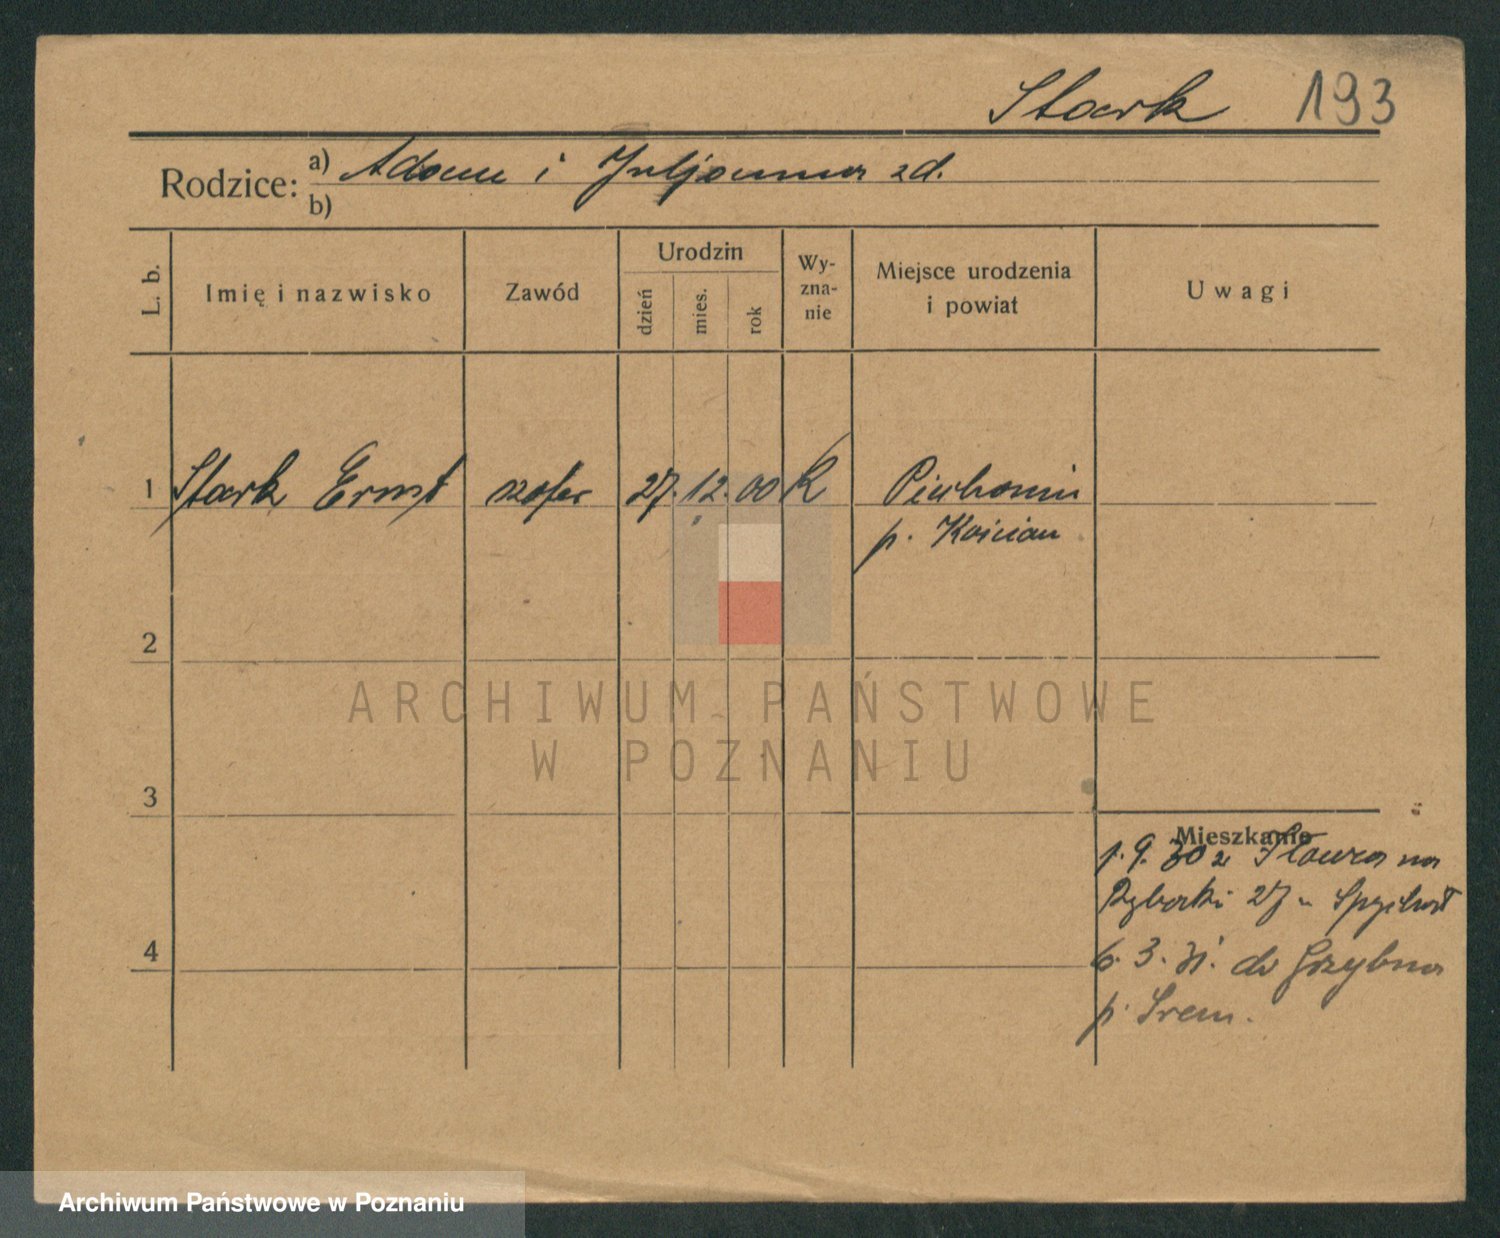 Stark 193
Rodzice: a) Adam i Juljanna zd.
b)
L. b. Imię i nazwisko Zawód Urodzin dzień mies. rok Wy-zna-nie Miejsce urodzenia i powiat Uwagi
1 Stark Ernst szofer 27. 12. 00 K
p. Kościan
2
ARCHIWUM PAŃSTWOWE
W POZNANIU
3
Mieszkanie
1. 9. 30 z na
Rybaki 27
6. 3. 31. do Grzybna
p. Śrem.
4
Archiwum Państwowe w Poznaniu